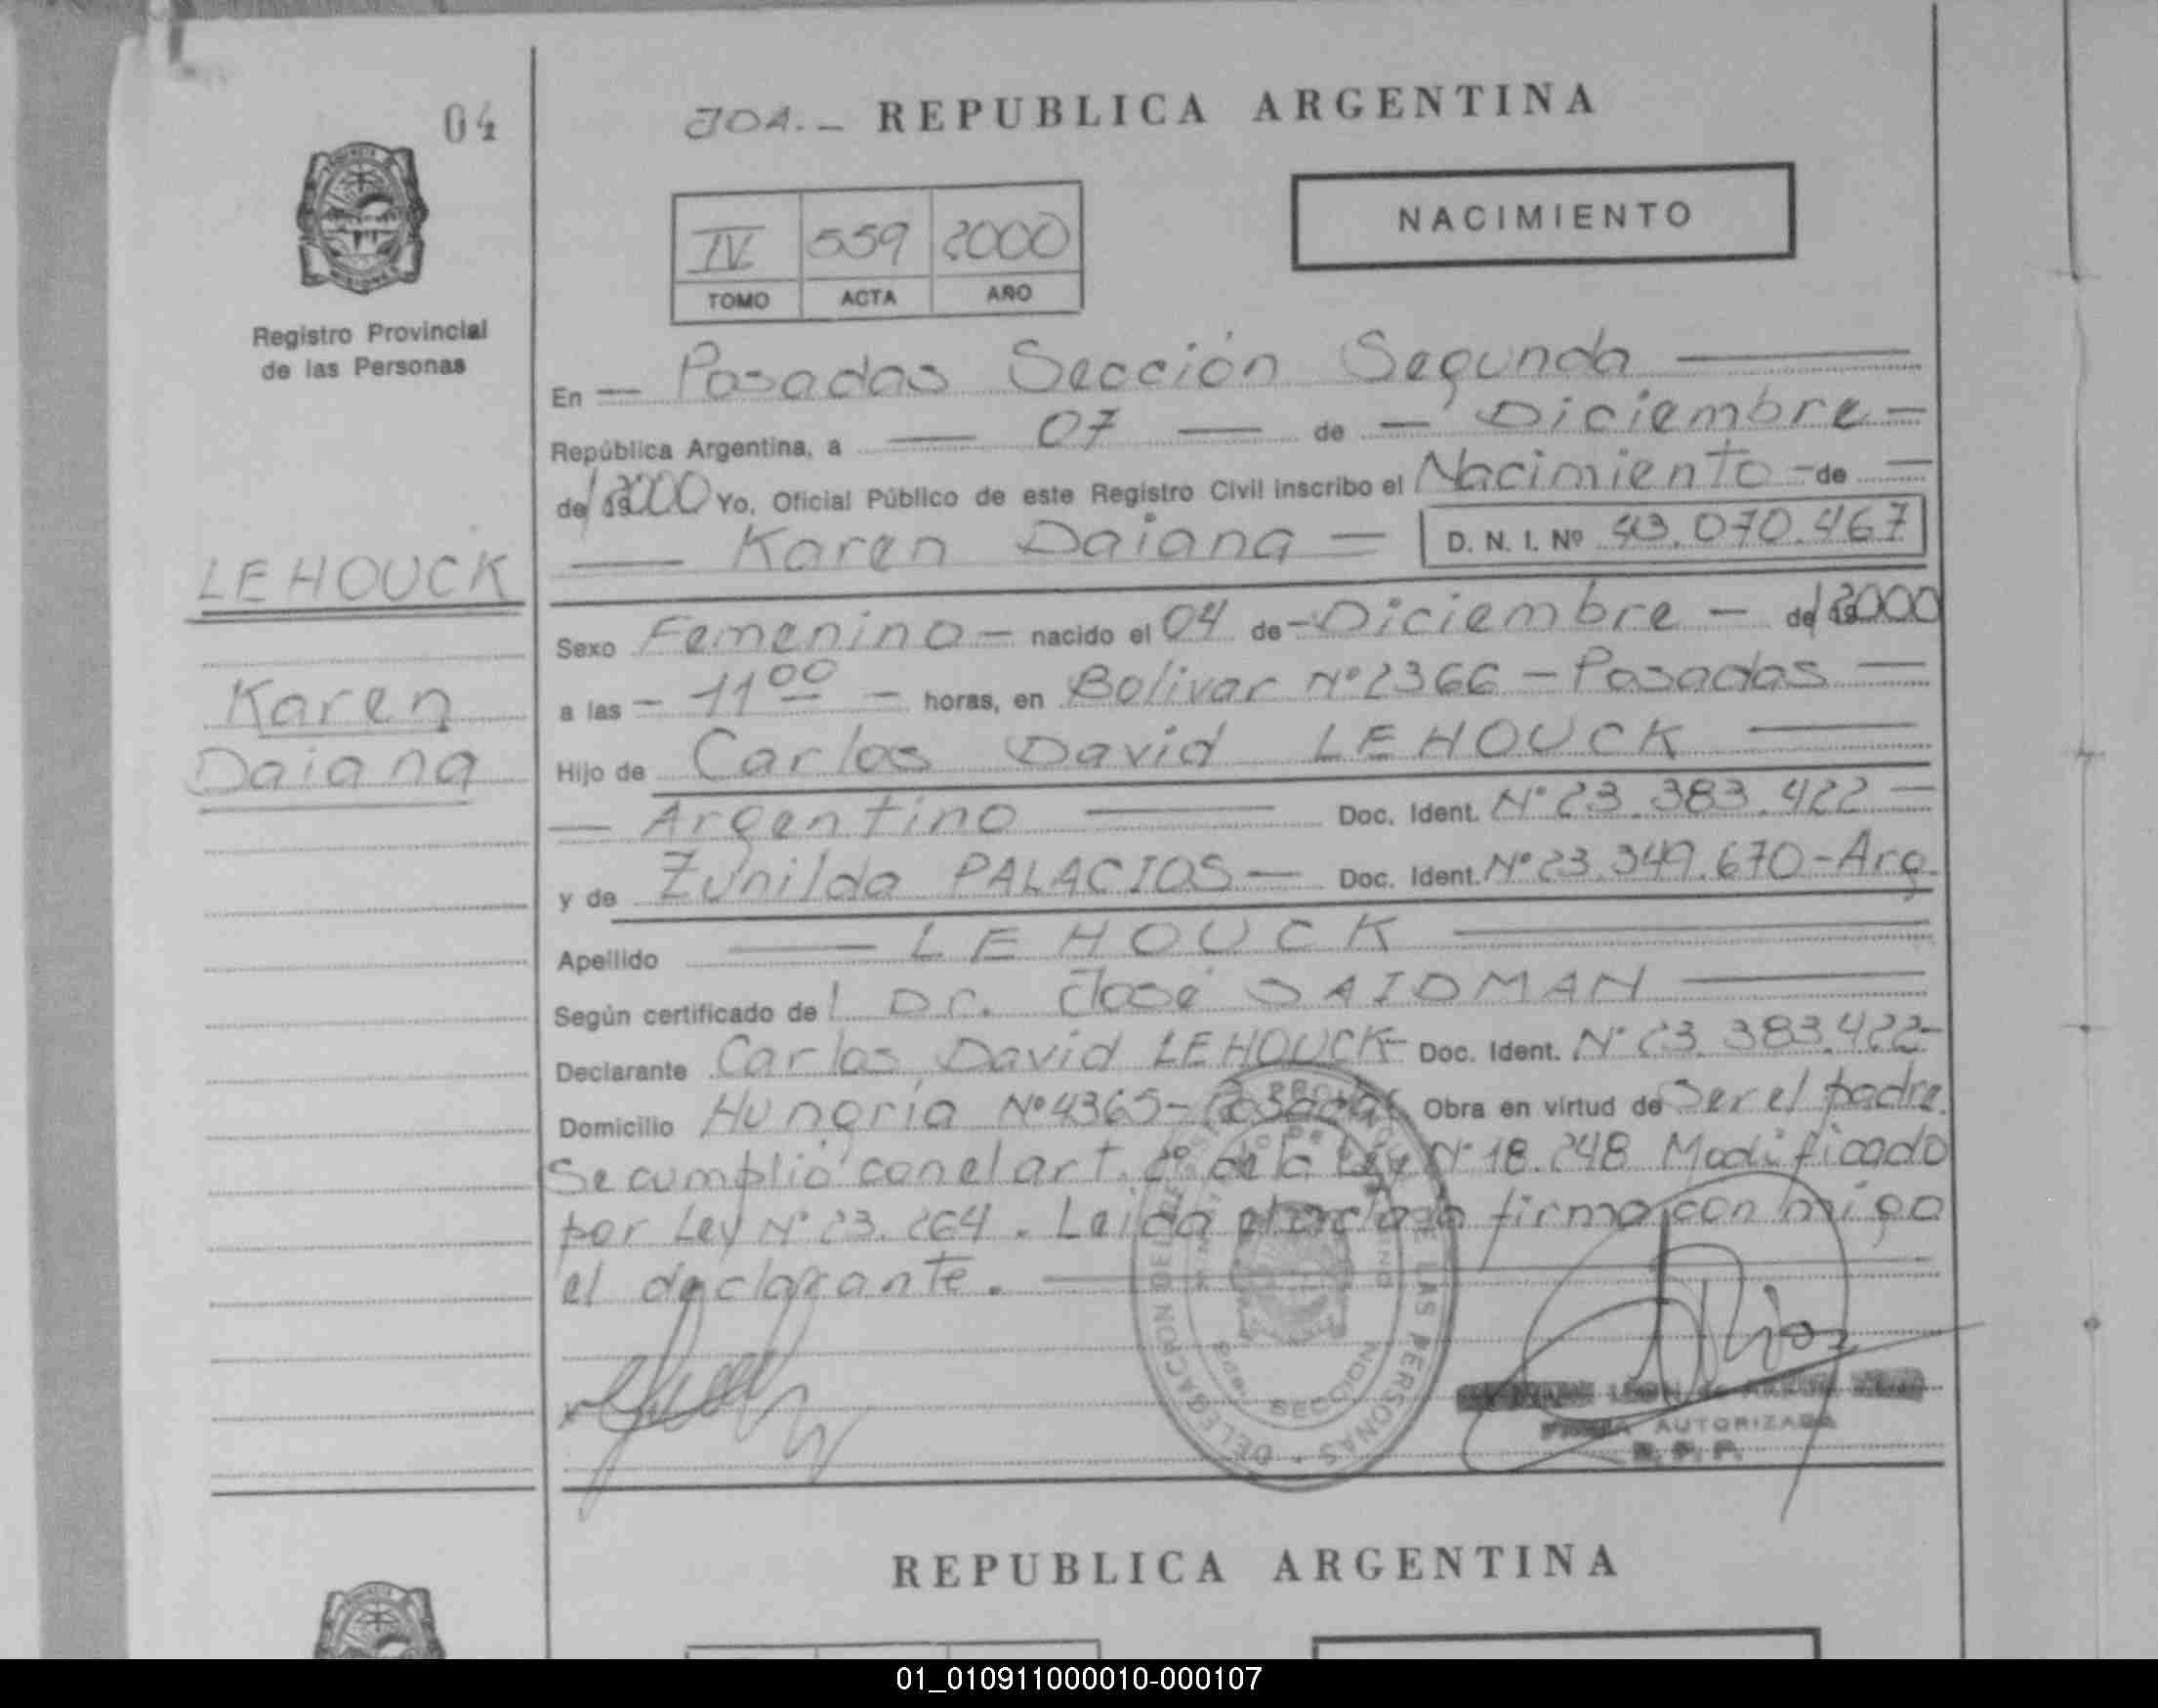 04
JOA.- REPUBLICA ARGENTINA
NACIMIENTO
IV 559 2000
TOMO ACTA AÑO
Registro Provincial
de las Personas
LEHOUCK
Karen
Daiana
En — Posadas Sección Segunda —
República Argentina, a — 07 — de — Diciembre —
de 2000 Yo, Oficial Público de este Registro Civil inscribo el Nacimiento - de —
— Karen Daiana — D. N. I. Nº 43.070.467
Sexo Femenino — nacido el 04 de - Diciembre — de 2000
a las — 11 00 — horas, en Bolivar Nº 2366 - Posadas —
Hijo de Carlos David LEHOUCK —
— Argentino — Doc. Ident. Nº 23.383.422 —
y de Zunilda PALACIOS — Doc. Ident. Nº 23.349.670 - Arg.
Apellido — LEHOUCK —
Según certificado del Dr. José SAIDMAN —
Declarante Carlos David LEHOUCK - Doc. Ident. Nº 23.383.422 -
Domicilio Hungria Nº 4365 - Posadas Obra en virtud de Ser el padre.
Se cumplió con el art. 2º de la Ley Nº 18.248 Modificado
por Ley Nº 23.264. Leida el acta la firma con migo
el declarante. —
DELEGACION DEL LAS PERSONAS
SECCION
AUTORIZADA
R. P. P.
REPUBLICA ARGENTINA
01_010911000010-000107